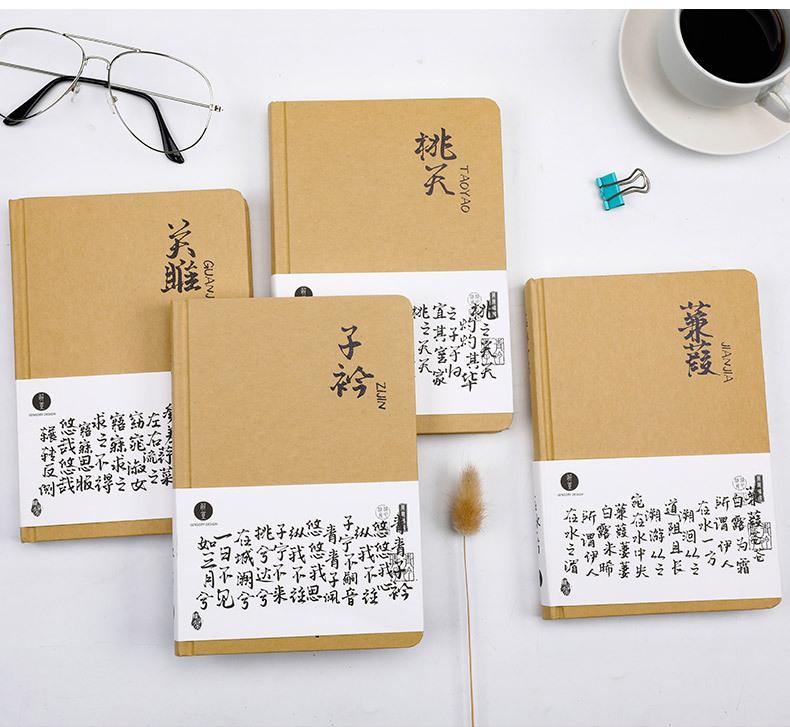 桃夭
TAOYAO
桃之夭夭
灼灼其华
之子于归
宜其室家
桃之夭夭
关雎
GUANJ
SENSORY DESIGN
参差荇菜
左右流之
窈窕淑女
寤寐求之
求之不得
寤寐思服
悠哉悠哉
辗转反侧
子衿
ZIJIN
SENSORY DESIGN
青青子衿
悠悠我心
纵我不往
子宁不嗣音
青青子佩
悠悠我思
纵我不往
子宁不来
挑兮达兮
在城阙兮
一日不见
如三月兮
蒹葭
JIANJIA
SENSORY DESIGN
蒹葭苍苍
白露为霜
所谓伊人
在水一方
溯洄从之
道阻且长
溯游从之
宛在水中央
蒹葭萋萋
白露未晞
所谓伊人
在水之湄